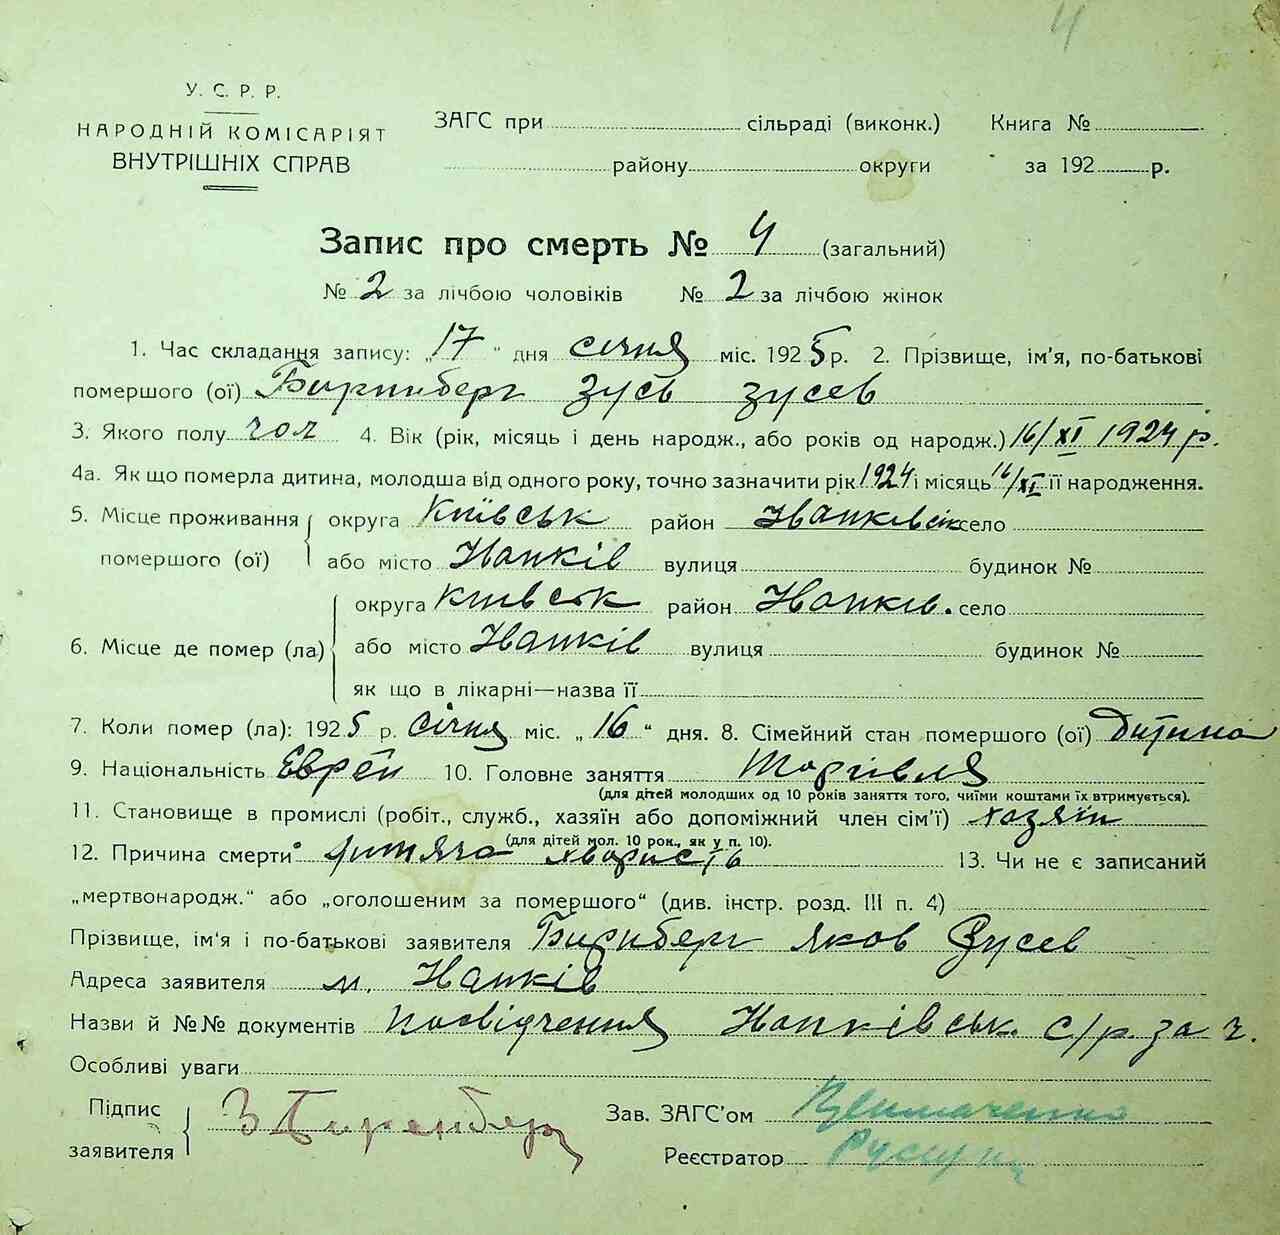 4
У. С. Р. Р.
НАРОДНІЙ КОМІСАРІЯТ
ВНУТРІШНІХ СПРАВ
ЗАГС при сільраді (виконк.) Книга №
району округи за 192 р.
Запис про смерть № 4 (загальний)
№ 2 за лічбою чоловіків № 2 за лічбою жінок
1. Час складання запису: „17" дня січня міс. 1925 р. 2. Прізвище, ім'я, по-батькові
помершого (ої) Зусь Зусев
3. Якого полу чол 4. Вік (рік, місяць і день народж., або років од народж.) 16/XI 1924 р.
4а. Як що померла дитина, молодша від одного року, точно зазначити рік 1924 і місяць 16/XI її народження.
5. Місце проживання округа Київськ район село
помершого (ої) або місто вулиця будинок №
округа Київськ район село
6. Місце де помер (ла) або місто вулиця будинок №
як що в лікарні—назва її
7. Коли помер (ла): 1925 р. січня міс. „16" дня. 8. Сімейний стан помершого (ої) Дитина
9. Національність Еврей 10. Головне заняття Торгівля
(для дітей молодших од 10 років заняття того, чиїми коштами їх втримується).
11. Становище в промислі (робіт., служб., хазяїн або допоміжний член сім'ї) хазяїн
(для дітей мол. 10 рок., як у п. 10).
12. Причина смерти дитяча хвористь 13. Чи не є записаний
„мертвонародж." або „оголошеним за помершого" (див. інстр. розд. III п. 4)
Прізвище, ім'я і по-батькові заявителя Бирнберг Яков Зусев
Адреса заявителя м.
Назви й №№ документів посвідчення с/р. за ч.
Особливі уваги
Підпис
заявителя
З Биренберг
Зав. ЗАГС'ом
Реєстратор